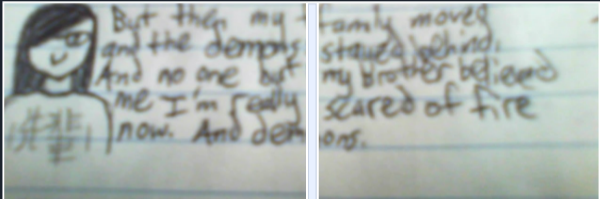 But then my family moved
and the demons stayed behind.
And no one but my brother believed
me I'm really scared of fire
now. And demons.